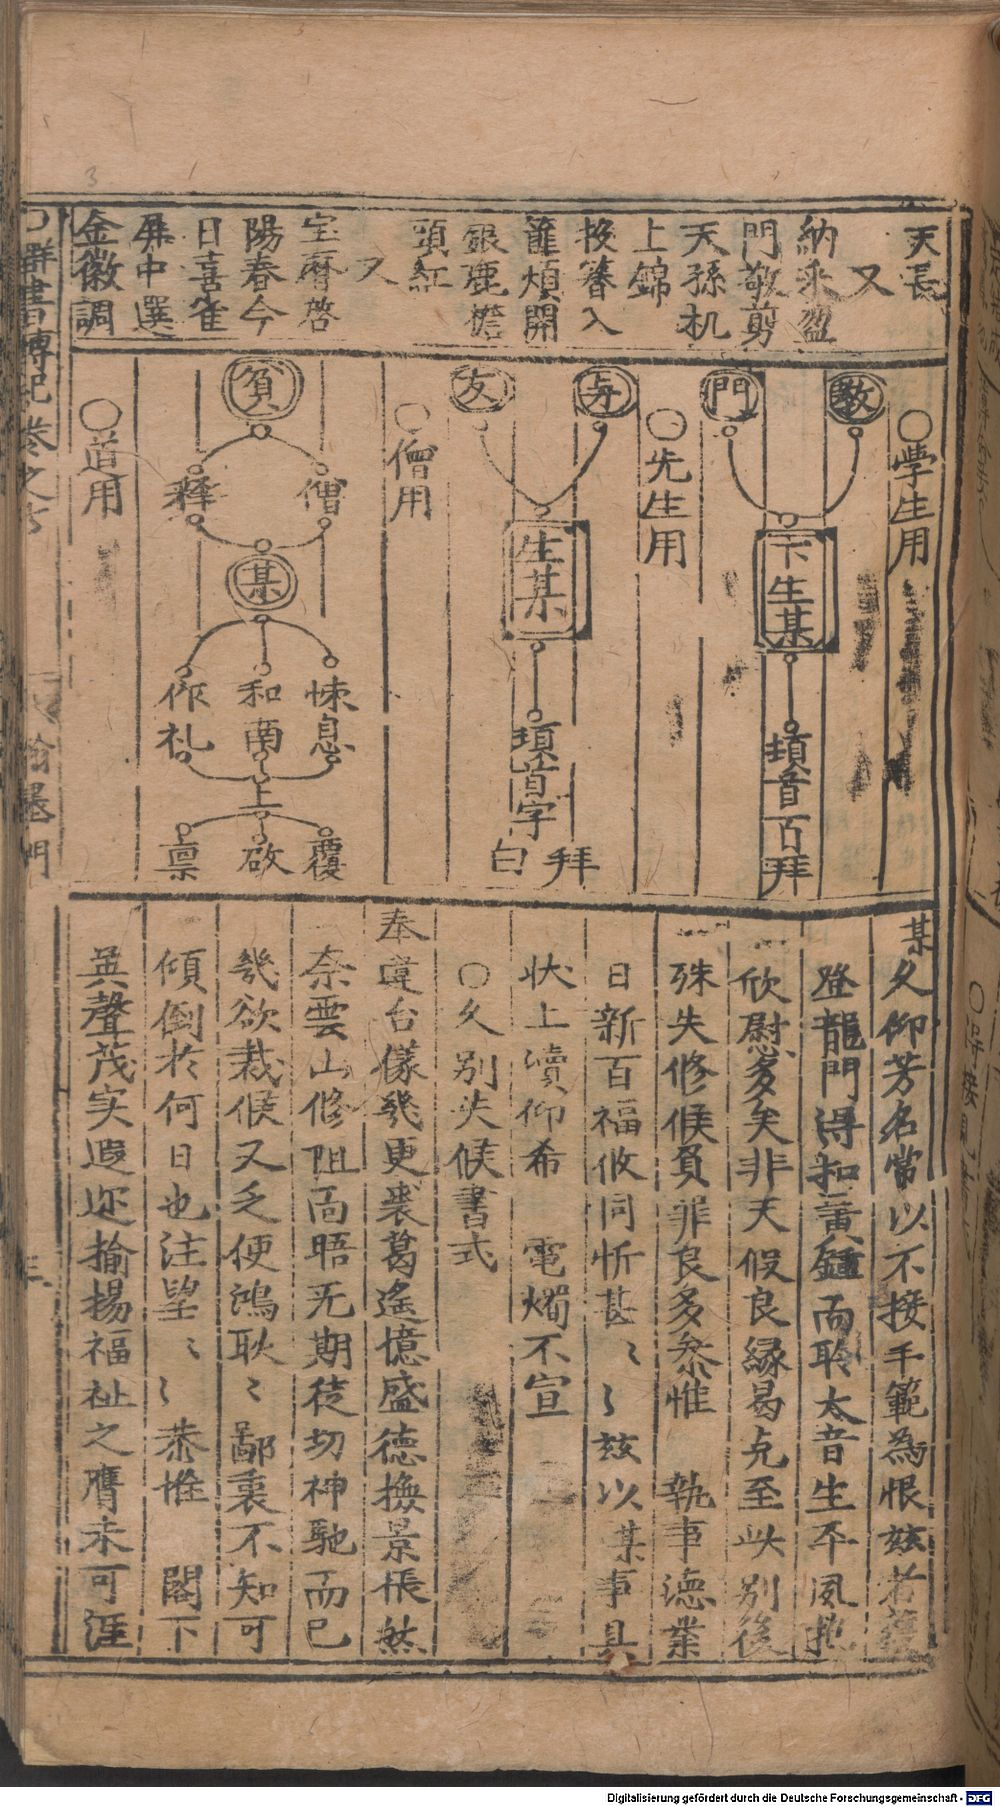 天長
又
納采盈
門敬剪
天孫机
上錦
投簪入
籠煩開
銀鹿檐
頭紅
又
宝曆啓
陽春今
日喜雀
屏中選
金徽調
〇學生用
教
門
下生某
頓首百拜
〇先生用
与
友
生某
頓首字
拜
白
〇僧用
貧
僧
釋
某
悚息
和南
作礼
上
覆
啟
稟
〇道用
某久仰芳名常以不接手範為恨玆者獲
登龍門得扣黃鍾而聆太音生平夙抱
欣慰多矣非天假良緣曷克至此別後
殊失修候負罪良多恭惟　執事德業
日新百福攸同忻甚〻〻玆以某事具
状上瀆仰希　電燭不宣
〇久別失候書式
奉違台儀幾更裘葛遙憶盛德撫景悵然
奈雲山修阻面晤无期徒切神馳而已
幾欲裁候又乏便鴻耿〻鄙裏不知可
傾倒於何日也注望〻〻恭惟　閣下
英聲茂实遐迩揄揚福祉之膺未可涯
群書博記卷之六
翰墨門
Digitalisierung gefördert durch die Deutsche Forschungsgemeinschaft - DFG